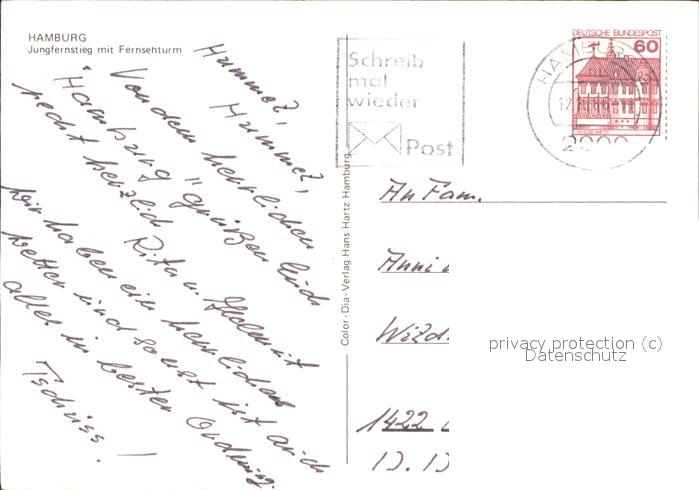 HAMBURG
Jungfernstieg mit Fernsehturm
Hummel,
Hummel,
Von dem herrlichen
Hamburg grüßen Euch
recht herzlich Rita u. Helmut
Wir haben ein herrliches
Wetter und sonst ist auch
alles in bester Ordnung.
Tschüss!
Color-Dia-Verlag Hans Hartz Hamburg
Schreib
mal
wieder
Post
HAMBURG
2000
DEUTSCHE BUNDESPOST
60
An Fam.
Anni
Wizd.
1422
privacy protection (c)
Datenschutz